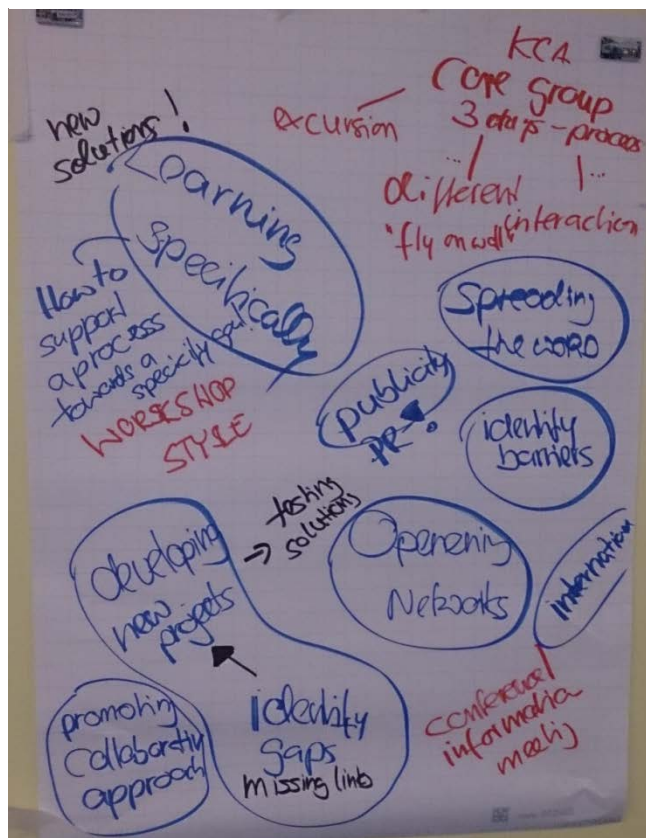 KCA
Core group
3 days - process
excursion
...
...
different
interaction
"fly on wall"
new
solutions!
Learning
specifically
How to
support
a process
towards a
specific goal
WORKSHOP
STYLE
Spreading
the WORD
publicity
PR!
identify
barriers
developing
new
projects
→ testing
solutions
Openening
Networks
internation
conference/
information
meeting
promoting
collaborativ
approach
identify
gaps
missing link